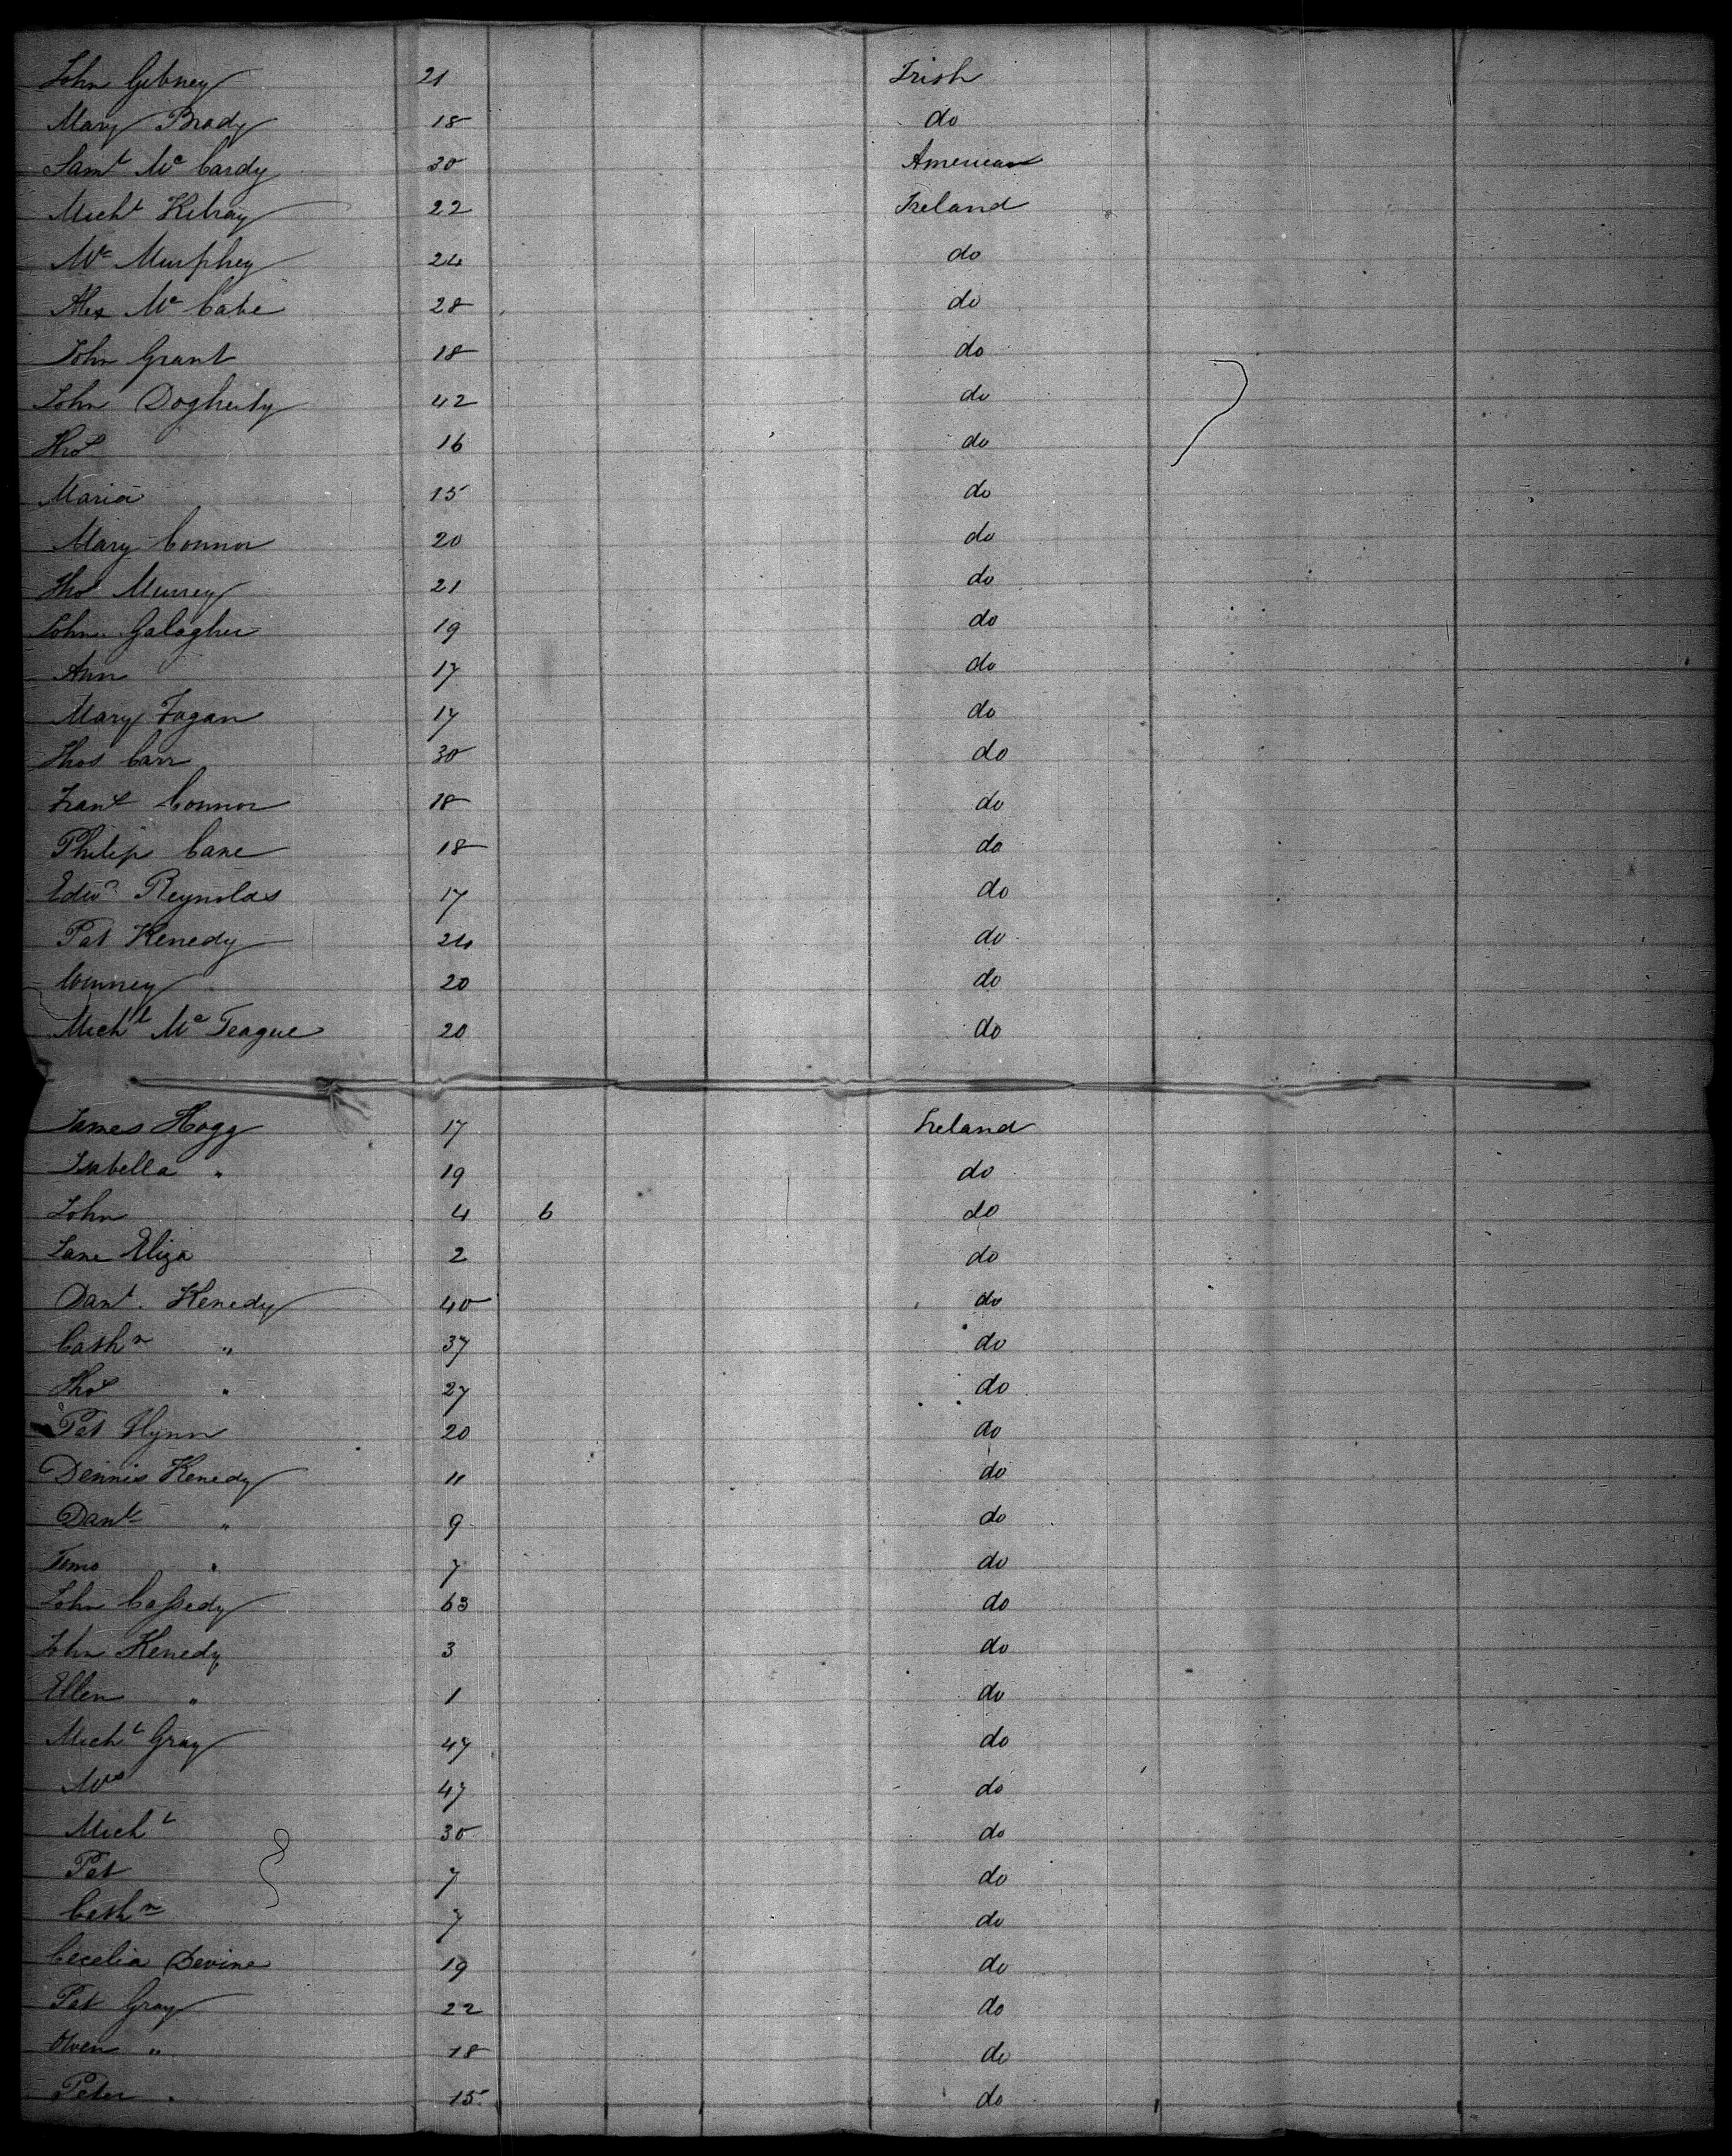 John Gibney 21 Irish
Mary Brady 18 do
Saml Mc Cardy 30 American
Michl Kilray 22 Ireland
Mc Murphey 24 do
Alex Mc Cabe 28 do
John Grant 18 do
John Dogherty 42 do
Thos 16 do
Maria 15 do
Mary Connor 20 do
Thos Murrey 21 do
John Galagher 19 do
Ann 17 do
Mary Fagan 17 do
Thos Carr 30 do
Frans Connor 18 do
Philip Cane 18 do
Edwd Reynolds 17 do
Pat Kenedy 24 do
20 do
Michl Mc Teague 20 do
James Hogg 17 Ireland
Isabella " 19 do
John 4 6 do
Jane Eliza 2 do
Danl. Kenedy 40 do
Cathn " 37 do
Thos " 27 do
Pat Flynn 20 do
Dennis Kenedy 11 do
Danl " 9 do
Timo " 7 do
John Cassedy 63 do
John Kenedy 3 do
Ellen " 1 do
Michl Gray 47 do
47 do
Michl 30 do
Pat 7 do
Cathn 7 do
Cecelia Devine 19 do
Pat Gray 22 do
Owen " 18 do
Peter " 15 do